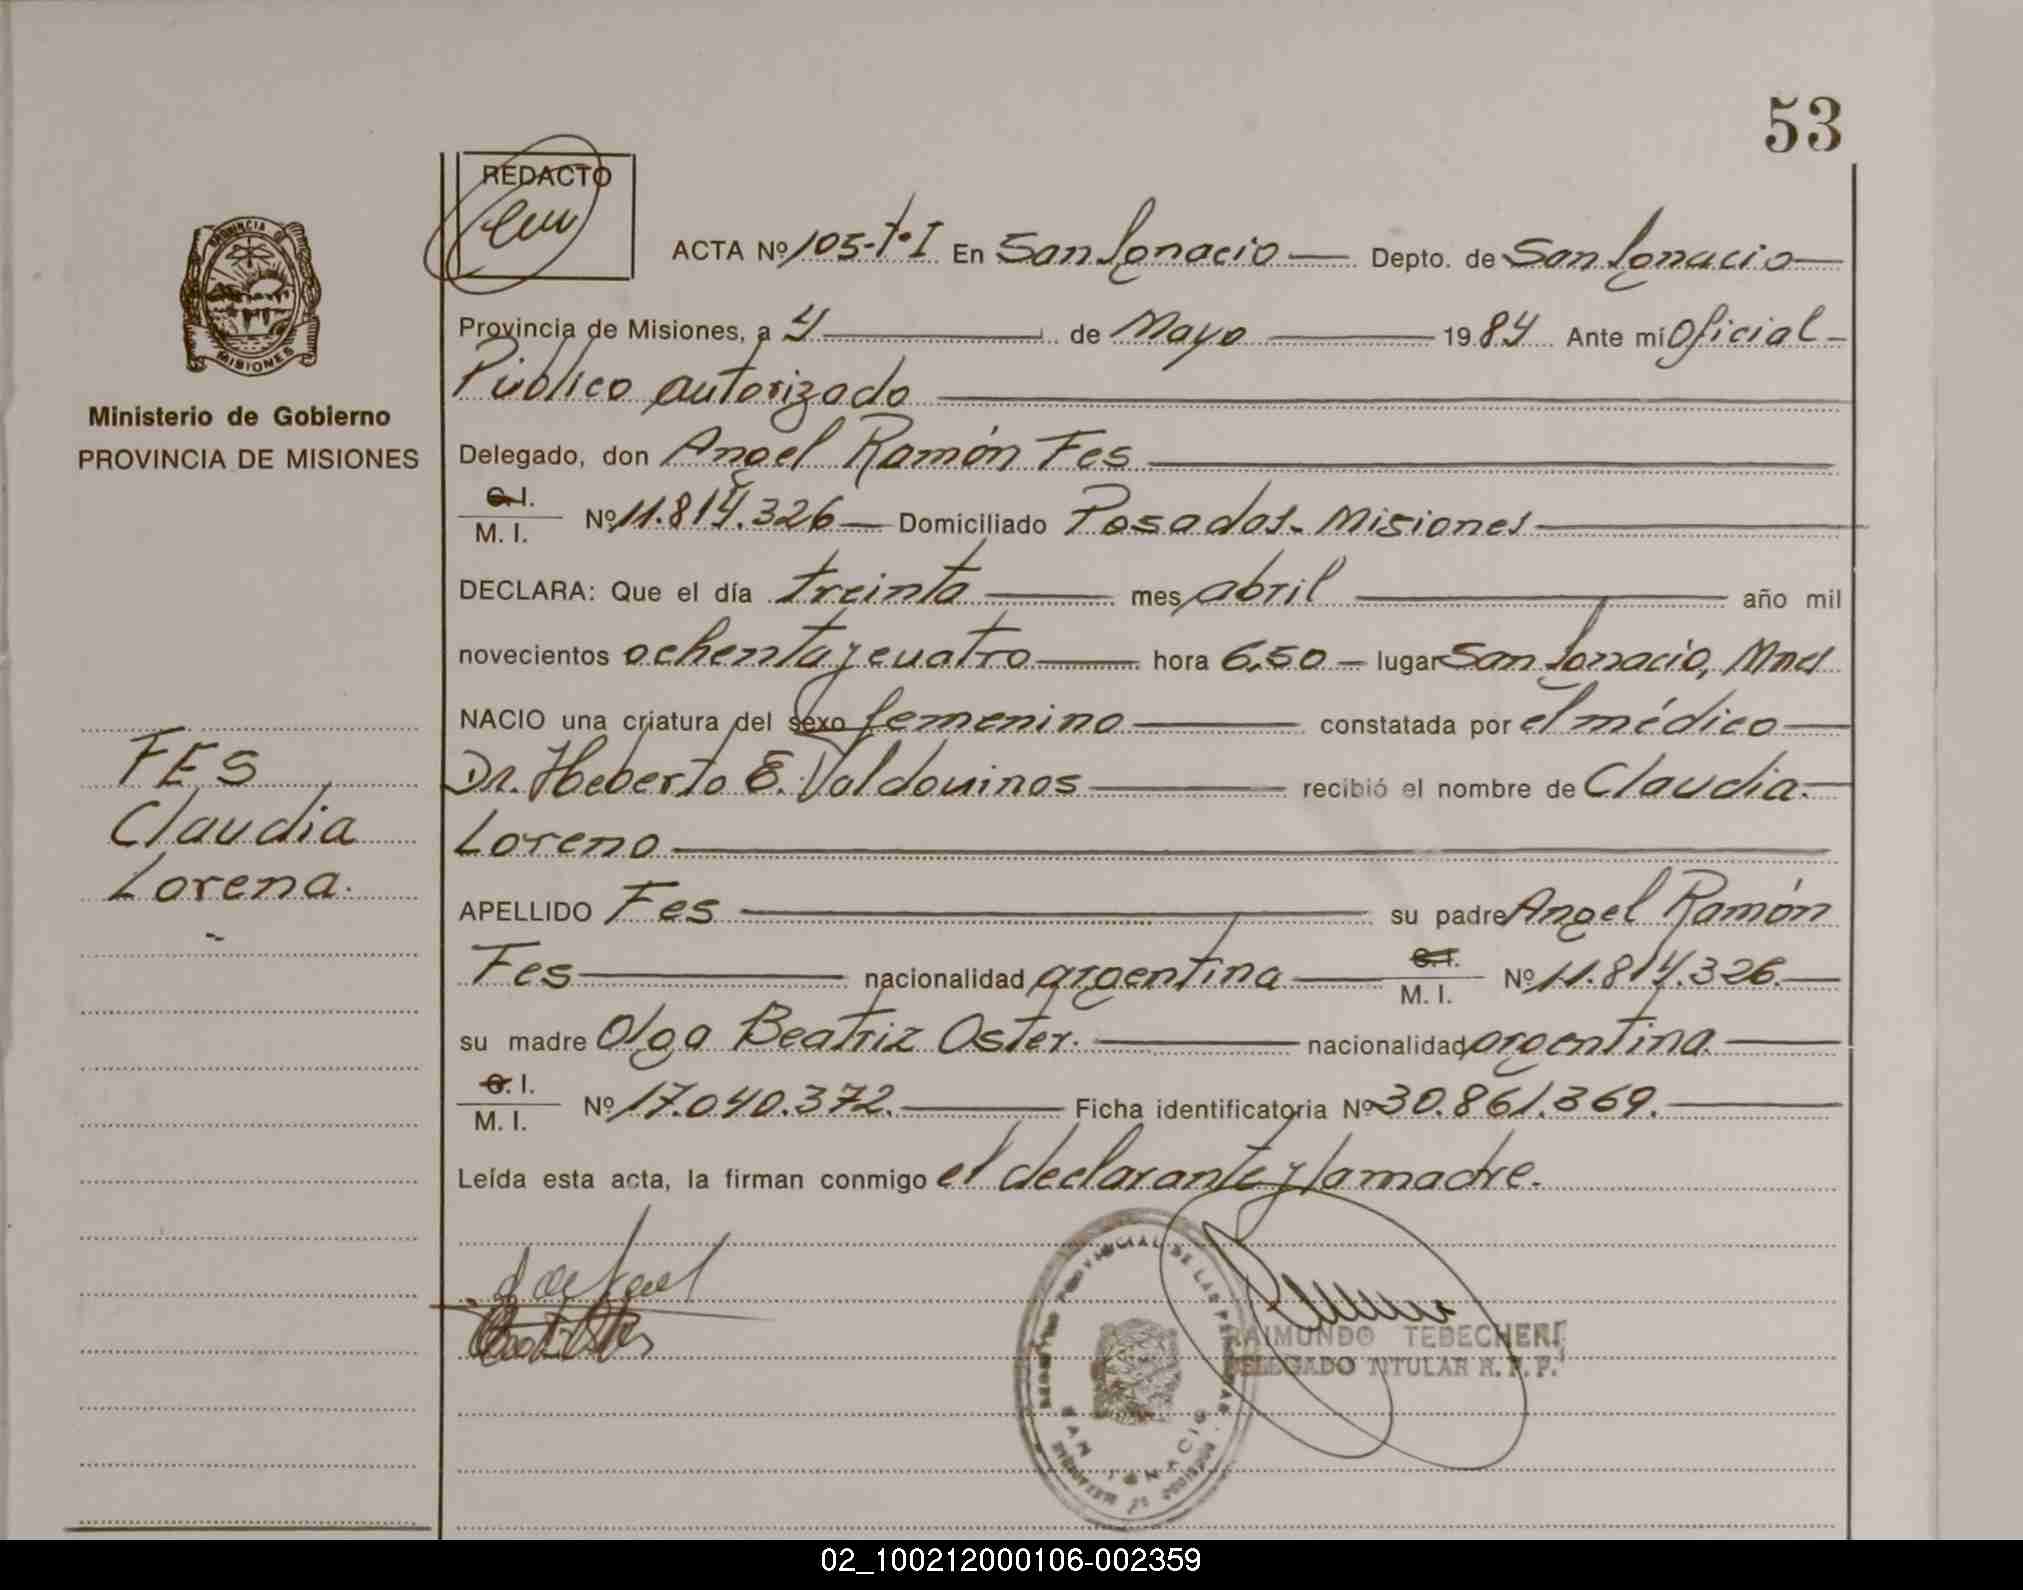 53
REDACTO
PROVINCIA DE
MISIONES
Ministerio de Gobierno
PROVINCIA DE MISIONES
ACTA Nº 105-T·I En San Ignacio Depto. de San Ignacio
Provincia de Misiones, a 4 de Mayo 1984 Ante mí Oficial
Público autorizado
Delegado, don Angel Ramón Fes
C. I.
M. I. Nº 11.814.326 Domiciliado Posadas. Misiones
DECLARA: Que el día treinta mes abril año mil
novecientos ochenta y cuatro hora 6,50 lugar San Ignacio, Mnes
NACIO una criatura del sexo femenino constatada por el médico
Dr. Heberto E. Valdovinos recibió el nombre de Claudia
Lorena
FES
Claudia
Lorena.
APELLIDO Fes su padre Angel Ramón
Fes nacionalidad argentina C. I.
M. I. Nº 11.814.326.
su madre Olga Beatriz Oster. nacionalidad argentina.
C. I.
M. I. Nº 17.040.372. Ficha identificatoria Nº 30.861.369.
Leída esta acta, la firman conmigo el declarante y la madre.
PROVINCIAL DE LAS PERSONAS
SAN IGNACIO
RAIMUNDO TEBECHERI
DELEGADO TITULAR R. P. P.
02_100212000106-002359